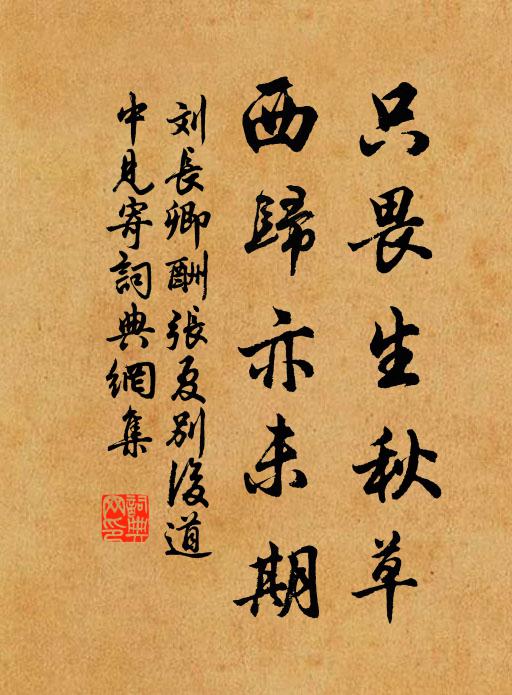 只畏生秋草
西歸亦未期
刘長卿酬張夏別後道
中見寄詞典網集
詞典
网印